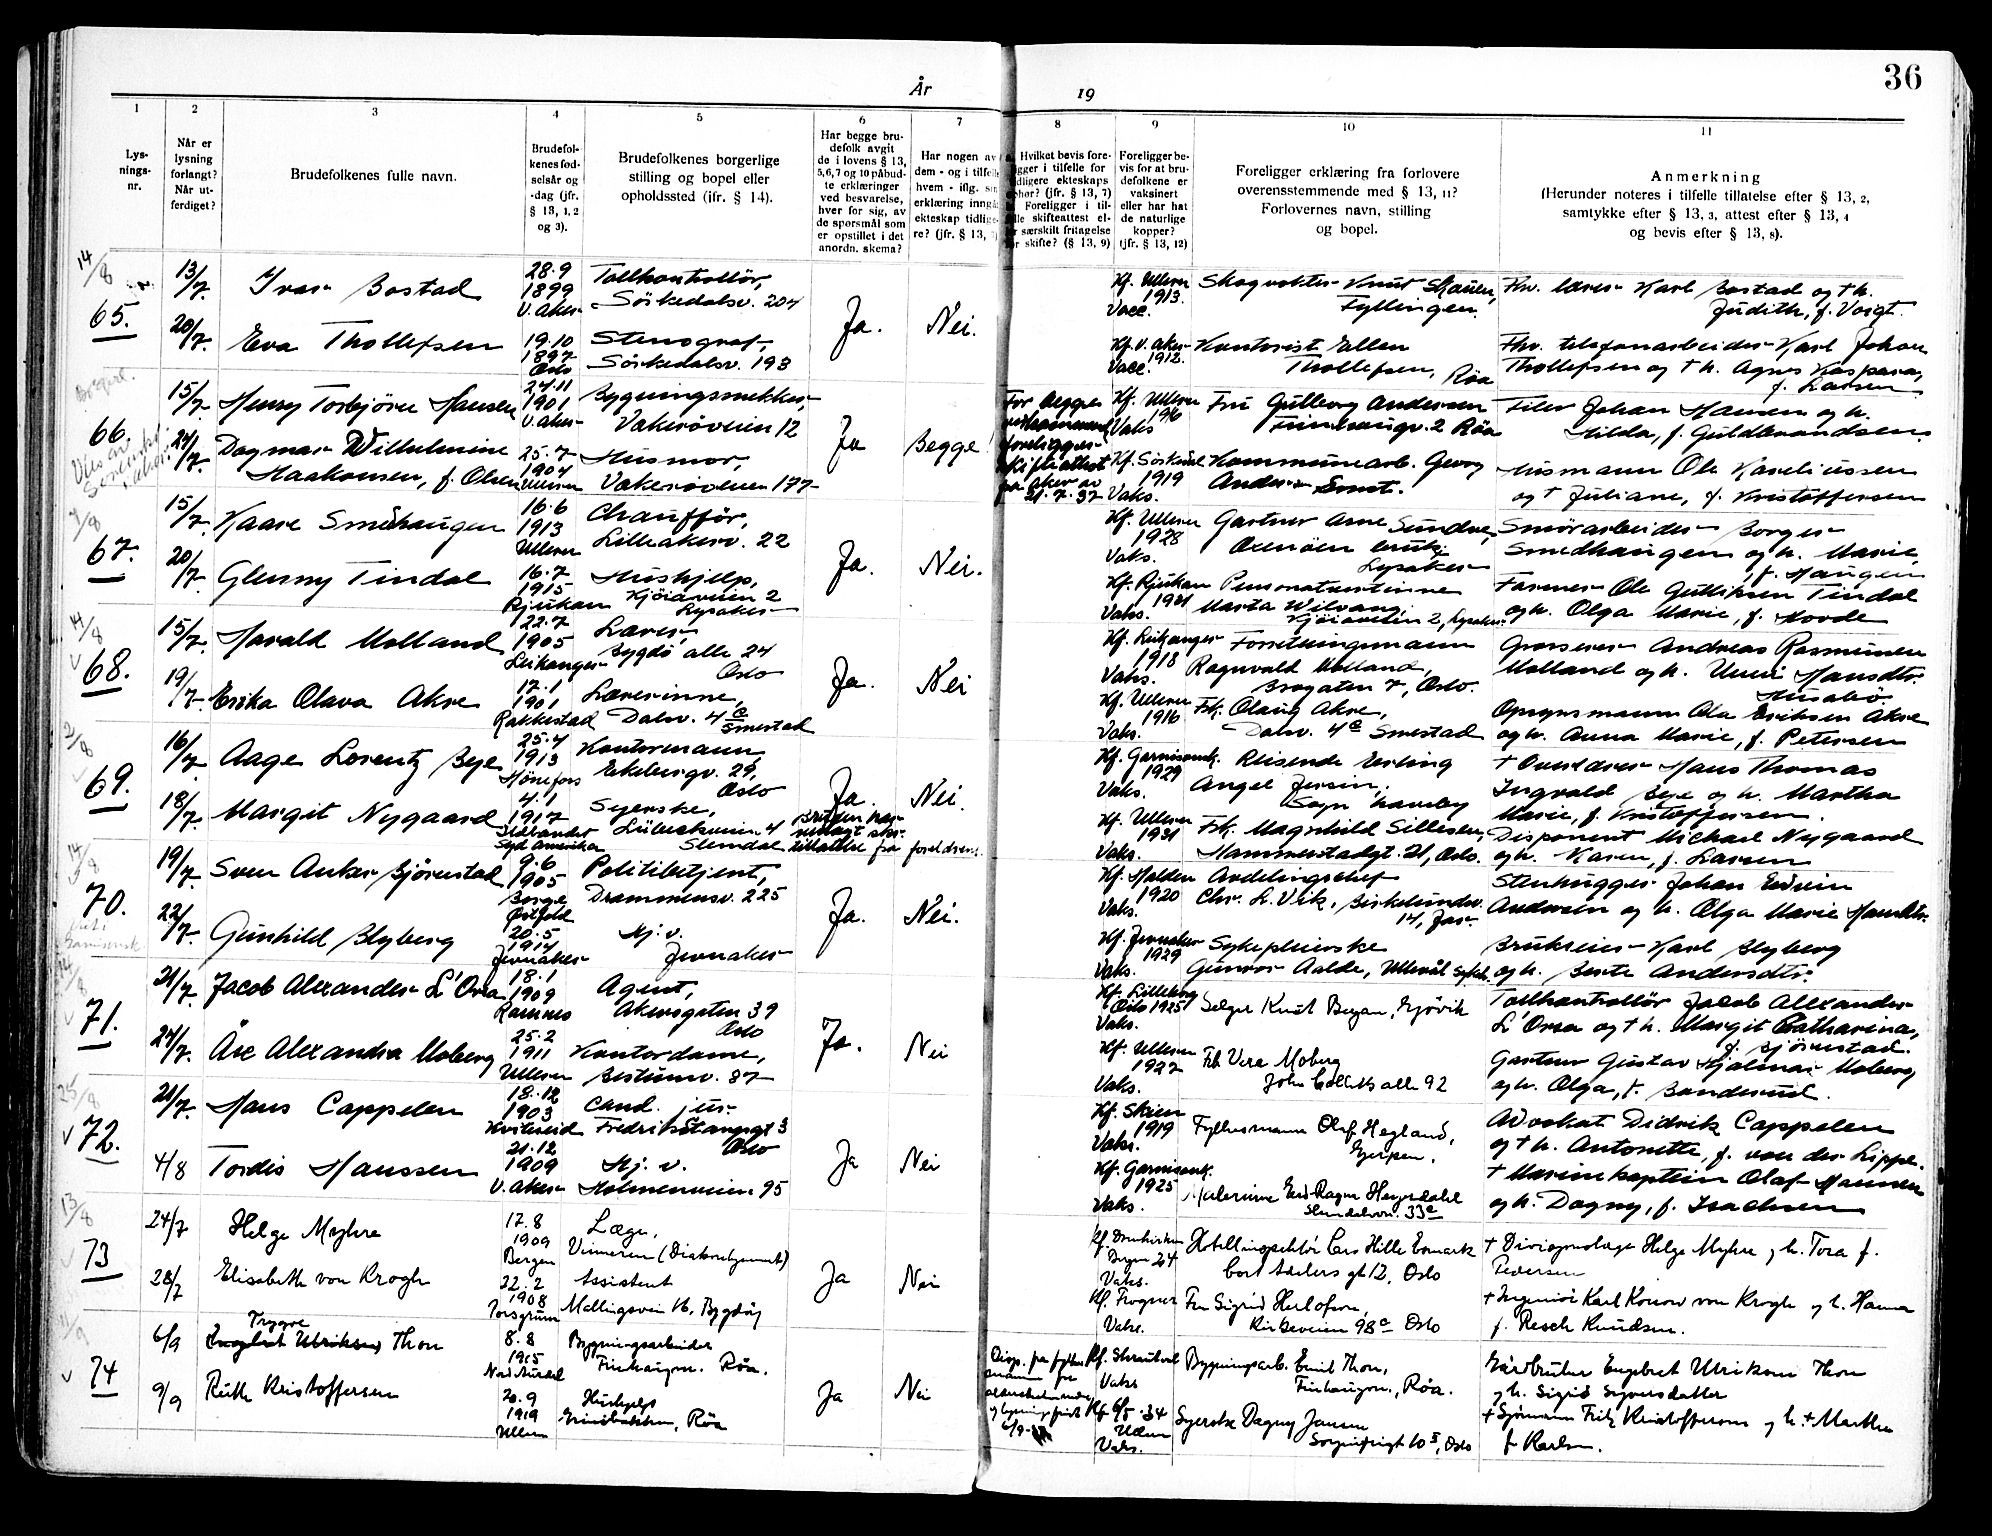 36
År
19
1
2
3
4
5
6
7
8
9
10
11
Lys-
nings-
nr.
Når er
lysning
forlangt?
Når ut-
ferdiget?
Brudefolkenes fulle navn.
Brudefol-
kenes fød-
selsår og
-dag (jfr.
§ 13, 1, 2
og 3).
Brudefolkenes borgerlige
stilling og bopel eller
opholdssted (ifr. § 14).
Har begge bru-
defolk avgit
de i lovens § 13,
5,6,7 og 10 påbud-
te erklæringer
ved besvarelse,
hver for sig, av
de spørsmål som
er opstillet i det
anordn. skema?
Har nogen av
dem - og i tilfelle
hvem - iflg. sin
erklæring inngå
ekteskap tidlige-
re? (jfr. § 13,
Hvilket bevis fore-
ligger i tilfelle for
tidligere ekteskaps
ophør? (jfr. § 13, 7)
Foreligger i til-
skifteattest el-
særskilt fritagelse
skifte? (§ 13, 9)
Foreligger be-
vis for at bru-
defolkene er
vaksinert
eller har hat
de naturlige
kopper?
(jfr. § 13, 12)
Foreligger erklæring fra forlovere
overensstemmende med § 13, 11?
Forlovernes navn, stilling
og bopel.
Anmerkning
(Herunder noteres i tilfelle tillatelse efter § 13, 2,
samtykke efter § 13, 3, attest efter § 13, 4
og bevis efter § 13, 8).
14/8
65.
13/7.
Ivar Bostad
28.9
1899
V. Aker
Tollkontrollør,
Sørkedalsv. 204
Ja.
Nei.
Kf. Ullern
1913.
Vacc.
Skogvokter Knut Skauen,
Fyllingen.
Fhv. lærer Karl Bostad og † h.
Judith, f. Voigt.
20/7.
Eva Thollefsen
19.10
1897
Oslo
Stenograf,
Sørkedalsv. 193
Kf. V. Aker
1912.
Vacc.
Kontorist Ellen
Thollefsen, Røa
Fhv. telefonarbeider Karl Johan
Thollefsen og † h. Agnes Kaspara,
f. Larsen
66.
15/7.
Henry Torbjørn Hansen
24.11
1901
V. Aker
Bygningssnekker,
Vækerøveien 12
Ja
Begge
For begge
foreligger
skifteattest
fra Aker av
21.7.37
Kf. Ullern
1916
Vaks
Fru Gulborg Andersen
2 Røa
Filer Johan Hansen og h.
Hilda, f. Guldbrandsen.
24/7.
Dagmar Wilhelmine
Haakonsen, f. Olsen
25.7
1904
Ullern
Husmor,
Vækerøveien 177
Kf. Sørkedal
1919
Vaks.
Kommunearb. Georg
Anders Smst.
Husmann Ole Kareliussen
og † Juliane, f. Kristoffersen
7/8
67.
15/7.
Kaare Smedhaugen
16.6
1913
Ullern
Chauffør,
Lilleakerv. 22
Ja.
Nei.
Kf. Ullern
1928
Vaks.
Gartner Arne Sundve,
Oxenøen bruk,
Lysaker
Smørarbeider Borger
Smedhaugen og h. Marie,
f. Haugen
20/7.
Glenny Tindal
16.7
1915
Rjukan
Hushjelp,
Kjøiaveien 2
Lysaker
Kf. Rjukan
1931
Vaks.
Pensjonatvertinne
Marta Wilvang,
Kjøiaveien 2, Lysaker.
Farmer Ole Gulliksen Tindal
og h. Olga Marie, f. Hovde
14/8
68.
15/7.
Harald Molland
22.7
1905
Leikanger
Lærer
Bygdø alle 24
Oslo
Ja.
Nei
Kf. Leikanger
1918
Vaks.
Forretningsmann
Ragnvald Molland,
Brogaten 7, Oslo.
Grosserer Andreas Rasmussen
Molland og h. Unni Hansdtr.
Husabø
19/7.
Erika Olava Akre
17.1
1901
Rakkestad
Lærerinne,
Dalsv. 4c
Smestad
Kf. Ullern
1916
Vaks.
Frk. Olaug Akre,
Dalsv. 4c Smestad
Opsynsmann Ola Eriksen Akre
og h. Anna Marie, f. Petersen
2/8
69.
16/7.
Aage Lorentz Bye
25.4
1913
Hønefoss
Kontormann
Ekebergv. 29,
Oslo
Ja.
Nei.
Kf. Garnisonsk.
1929
Vaks.
Reisende Erling
Angel Jensen,
Sogn haveby
† Overlærer Hans Thomas
Ingvald Bye og h. Martha
Marie, f. Kristoffersen.
18/7.
Margit Nygaard
4.1
1917
Ildlandet
Syd Amerika
Syerske,
Lybeckveien 4
Slemdal
Bruden har
tillatelse fra foreldrene.
Kf. Ullern
1931
Vaks.
Frk. Magnhild Sillesen,
Hammerstadgt. 21, Oslo.
Disponent Michael Nygaard
og h. Karen, f. Larsen
14/8
70.
19/7.
Sven Anker Bjørnstad
9.6
1905
Borge
Østfold
Politibetjent,
Drammensv. 225
Ja.
Nei.
Kf. Halden
1920
Vaks.
Avdelingschef
Chr. L. Vik, Birkelundsv.
14, Jar.
Stenhugger Johan Edvin
Andersen og h. Olga Marie Hansdtr.
22/7.
Gunhild Blyberg
20.5
1914
Jevnaker
Hj. v.
Jevnaker
Kf. Jevnaker
1929
Vaks.
Sykepleierske
Gunvor Aalde, Ullevål sykeh.
Brukseier Karl Blyberg
og h. Berte Andersdtr.
71.
21/7.
Jacob Alexander L'Orsa
18.1
1909
Ramnes
Agent,
Akersgaten 39
Oslo
Ja.
Nei
Kf. Lilleborg
Oslo 1925
Vaks.
Selger Knut Bergan, Gjøvik
Tollkontrollør Jacob Alexander
L'Orsa og † h. Margit Catharina,
f. Bjørnstad.
24/7.
Åse Alexandra Moberg
25.2
1911
Ullern
Kontordame,
Bestumv. 87
Kf. Ullern
1927
Vaks.
Frk Vera Moberg
John Colletts alle 92
Gartner Gustav Hjalmar Moberg
og h. Olga, f. Bondesund.
25/8
72.
21/7.
Hans Cappelen
18.12
1903
Kviteseid
cand. jur.
Fredrik Stangsgt 3
Oslo
Ja
Nei
Kf. Skien
1919
Vaks.
Fyllesmann Olaf Hegland,
Gjerpen.
Advokat Didrik Cappelen
og † h. Antonette, f. von der Lippe.
4/8
Tordis Hanssen
21.12
1909
V. Aker
Hj. v.
Holmenveien 95
Kf. Garnisonsk.
1925
Vaks.
Slemdalsvn. 33a
† Marinekaptein Olaf Hanssen
og h. Dagny, f. Isachsen
13/8
73
24/7
Helge Myhre
17.8
1909
Bergen
Læge,
Vinderen (Diakonhjemmet)
Ja
Nei
Kf. Domkirken
Bergen 24
Vaks.
Hotellinspektør Lars Hille Esmark
Cort Adelers gt 12, Oslo
† Divisjonslæge Helge Myhre og h. Tora f.
Pedersen
28/7
Elisabeth von Krogh
22.2
1908
Porsgrunn
Assistent
Mellingsvein 16, Bygdøy
Kf. Frogner
Vaks.
Fru Sigrid Herlofson,
Kirkeveien 98a Oslo
† Ingeniør Karl Konow von Krogh og h. Hanna
f. Resch Knudsen.
74
6/9
Trygve
Engebret Ulriksen Thon
8.8
1915
Nord Aurdal
Bygningsarbeider
Finhaugvn. Røa.
Ja
Nei
Disp. fra fylkes
mannen for
6/9-37
Kf. Skrautvål
Vaks
Bygningsarb. Emil Thon,
Finhaugvn., Røa.
Gårdbruker Engebret Ulriksen Thon
og h. Sigrid Sigursdatter
9/9
Ruth Kristoffersen
20.9
1919
Ullern
Hushjelp
Grinibakken, Røa
Kf 6/5.34
Ullern
Vaks.
Syerske Dagny Jansen
Sognsgt 10 II, Oslo
† Sjømann Fritz Kristoffersen og h. † Marthe
f Karlsen.